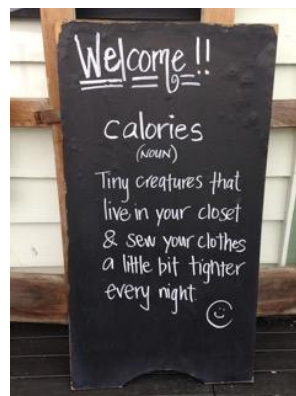 Welcome!!
calories
(NOUN)
Tiny creatures that
live in your closet
& sew your clothes
a little bit tighter
every night.